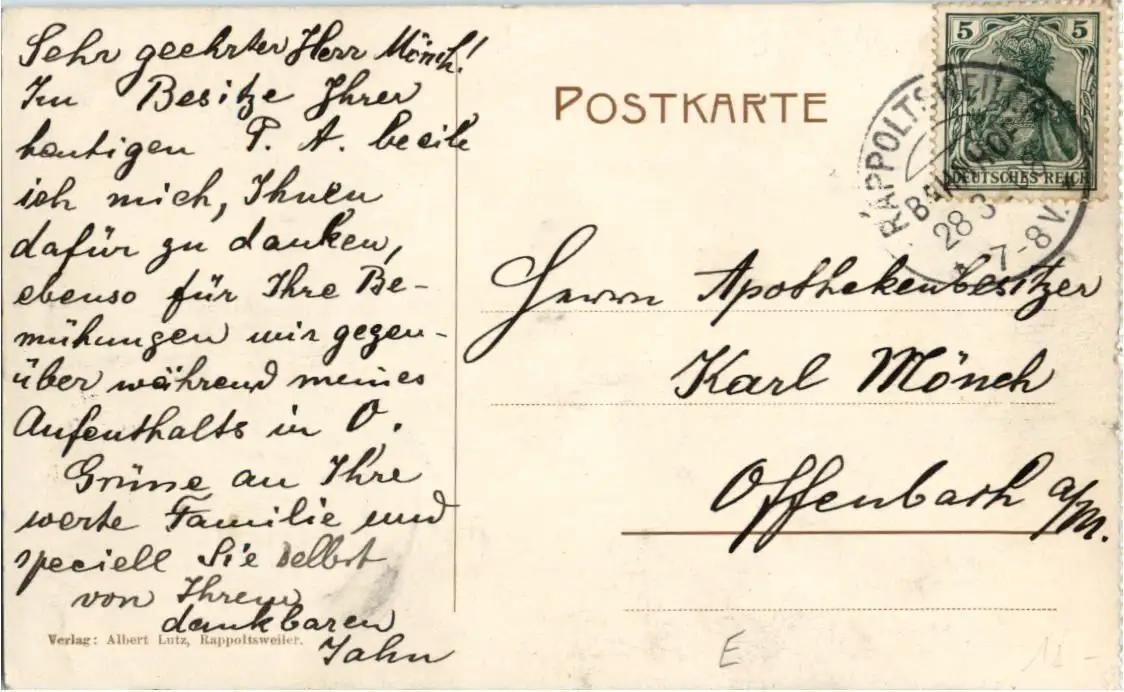 Sehr geehrter Herr Mönch!
Im Besitze Ihrer
heutigen P. A. beeile
ich mich, Ihnen
dafür zu danken,
ebenso für Ihre Be-
mühungen mir gegen-
über während meines
Aufenthalts in O.
Grüsse an Ihre
werte Familie und
speciell Sie selbst
von Ihrem
dankbaren
Jahn
Verlag: Albert Lutz, Rappoltsweiler.
POSTKARTE
5 5
DEUTSCHES REICH
RAPPOLTSWEILER
BAHNHOF
28 3
7-8 V.
Herrn Apothekenbesitzer
Karl Mönch
Offenbach a/M.
E
12 -